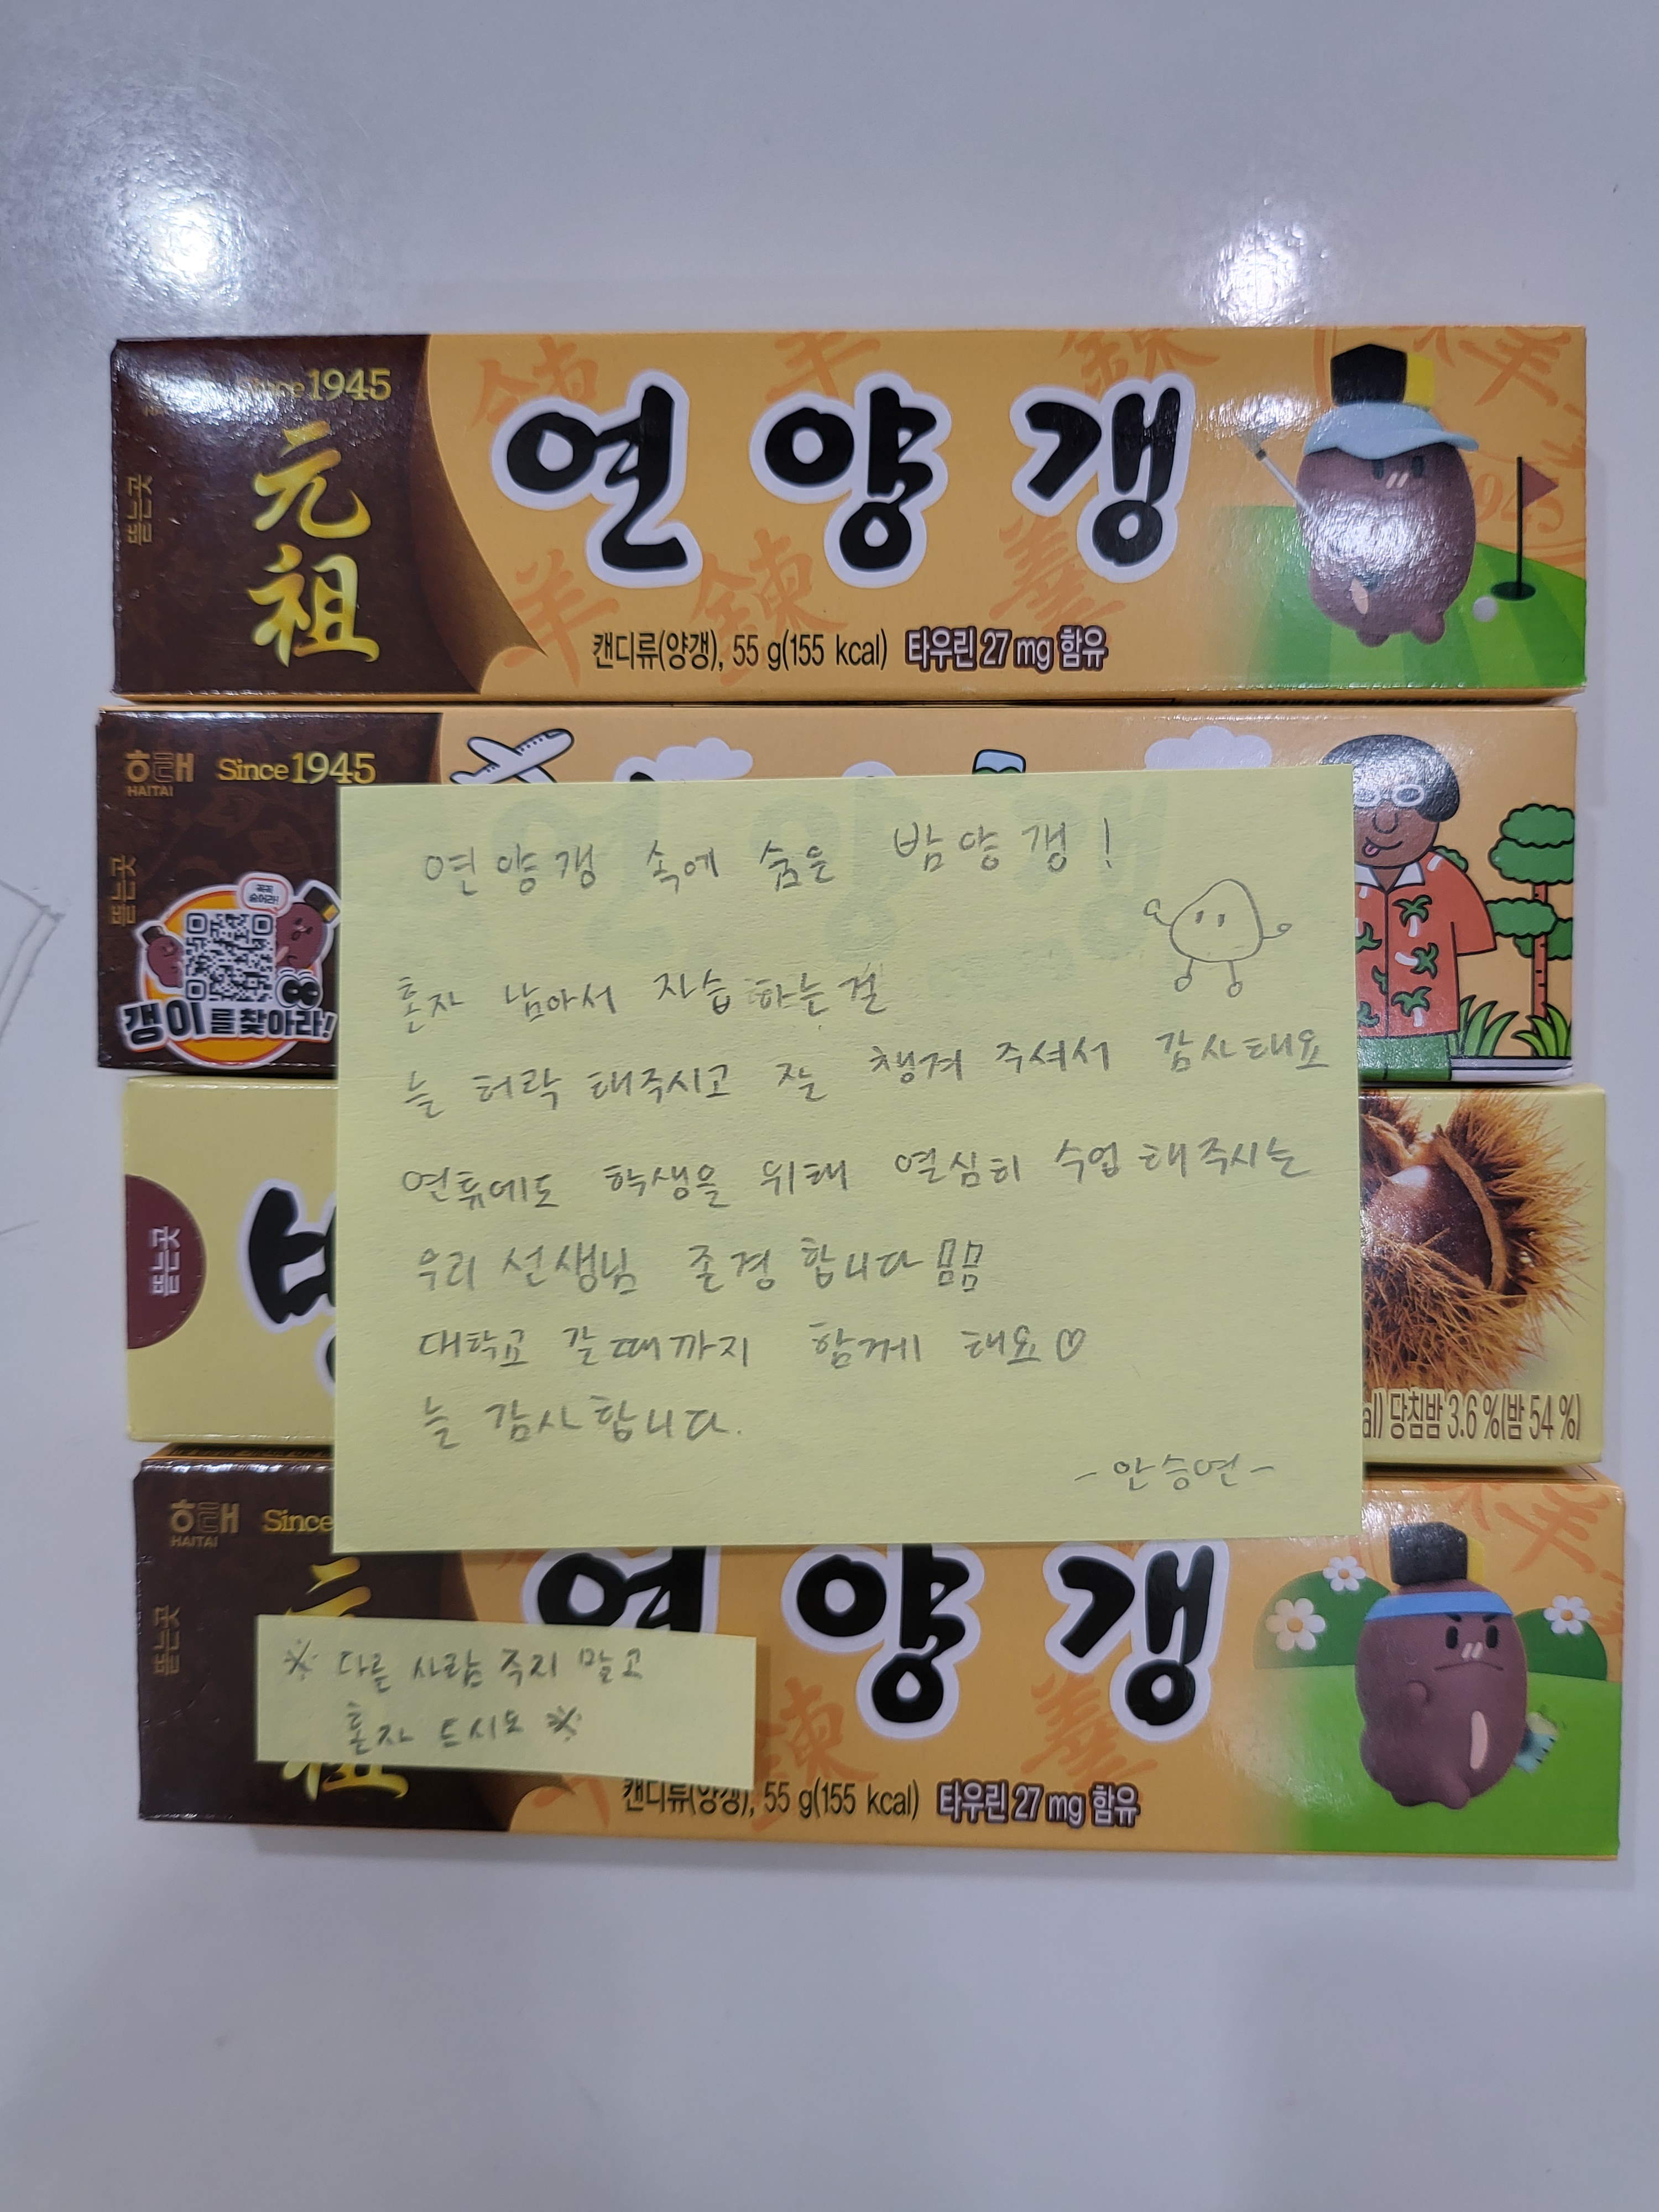 Since 1945
뜯는곳
元祖
연양갱
캔디류(양갱), 55 g(155 kcal) 타우린 27 mg 함유
해태
HAITAI
Since 1945
뜯는곳
갱이를 찾아라!
연양갱 속에 숨은 밤양갱!
혼자 남아서 자습하는걸
늘 허락 해주시고 잘 챙겨 주셔서 감사해요
연휴에도 학생을 위해 열심히 수업 해주시는
우리 선생님 존경 합니다 몸몸
대학교 갈때까지 함께 해요♡
늘 감사합니다.
-안승연-
뜯는곳
당침밤 3.6 %(밤 54 %)
해태
HAITAI
Since
뜯는곳
연양갱
※ 다른 사람 주지 말고
혼자 드시오 ※
캔디류(양갱), 55 g(155 kcal) 타우린 27 mg 함유